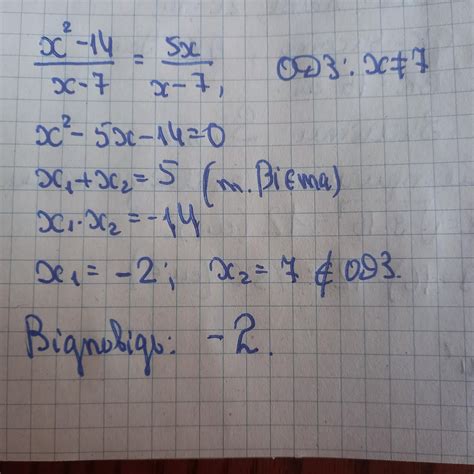 x² - 14 / x - 7 = 5x / x - 7, ОДЗ: x ≠ 7
x² - 5x - 14 = 0
x₁ + x₂ = 5 (т. Вієта)
x₁ · x₂ = -14
x₁ = -2; x₂ = 7 ∉ ОДЗ.
Відповідь: -2.